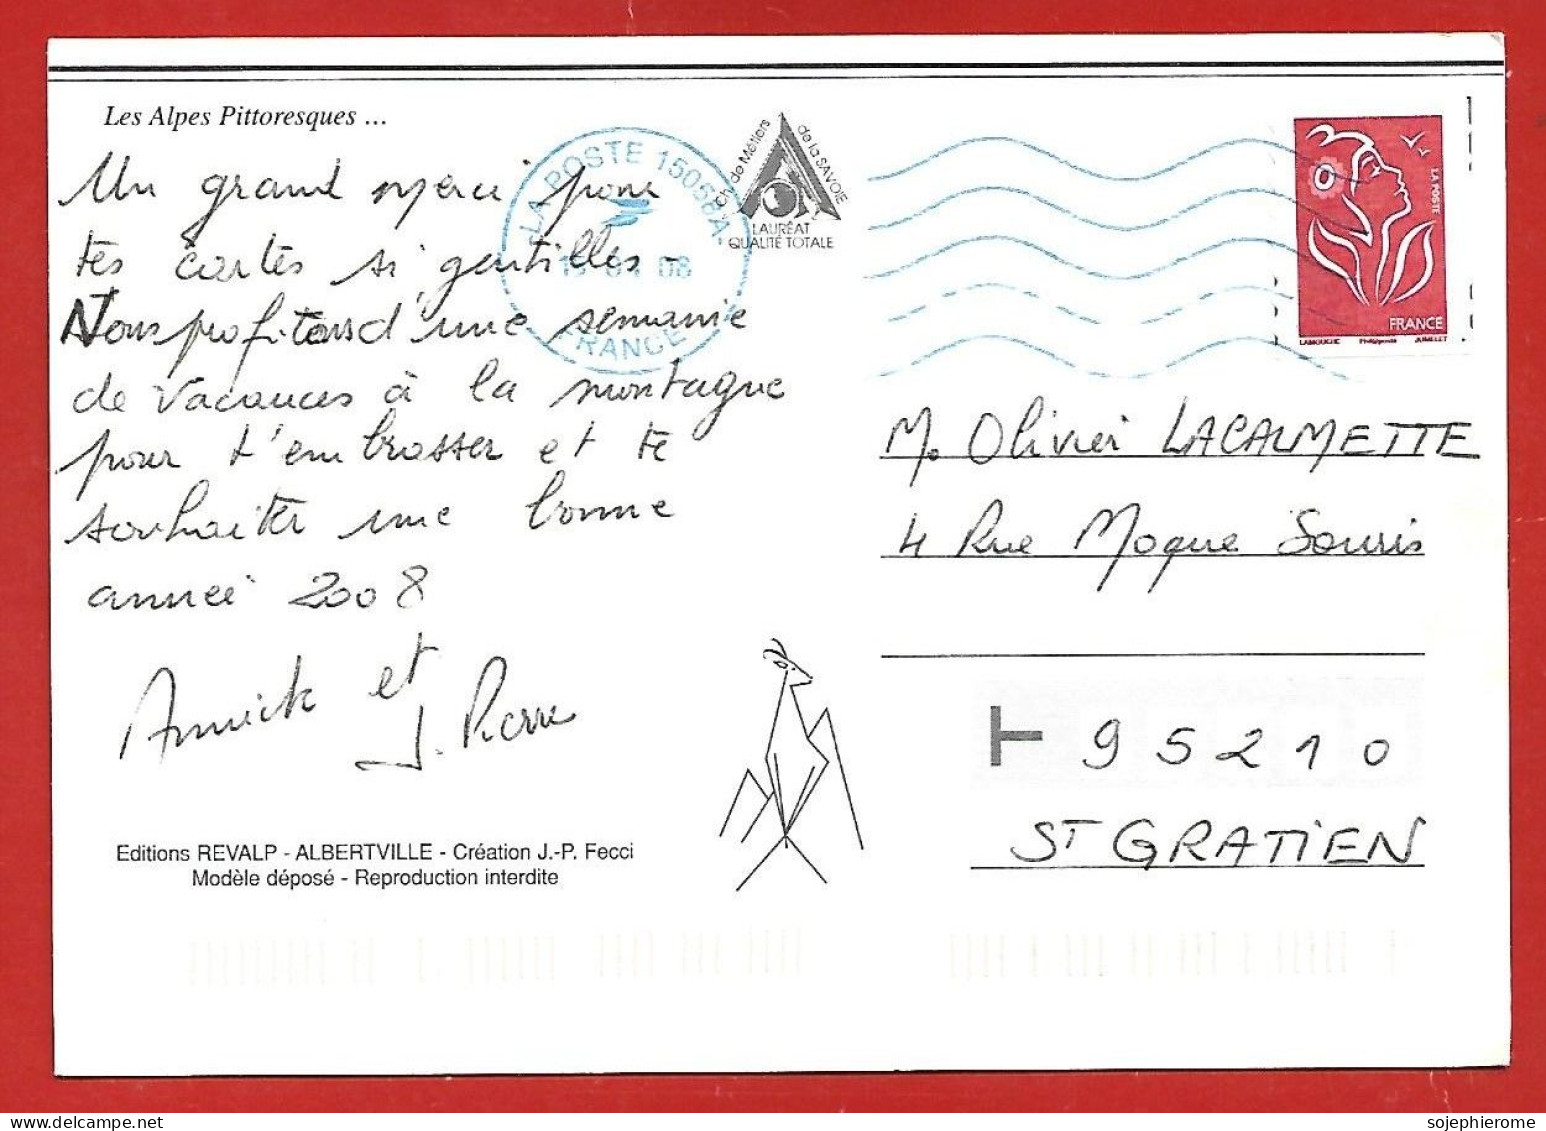 Les Alpes Pittoresques ...
Un grand merci pour
tes cartes si gentilles -
Nous profitons d'une semaine
de vacances à la montagne
pour t'embrasser et te
souhaiter une bonne
année 2008
Annick et
J. Pierre
Editions REVALP - ALBERTVILLE - Création J.-P. Fecci
Modèle déposé - Reproduction interdite
LA POSTE 15058A
08
FRANCE
Ch. de Métiers de la SAVOIE
LAURÉAT
QUALITÉ TOTALE
LA POSTE
FRANCE
LAMOUCHE Phil@poste JUMELET
M. Olivier LACALMETTE
4 Rue Moque Souris
95210
ST GRATIEN
sojephierome